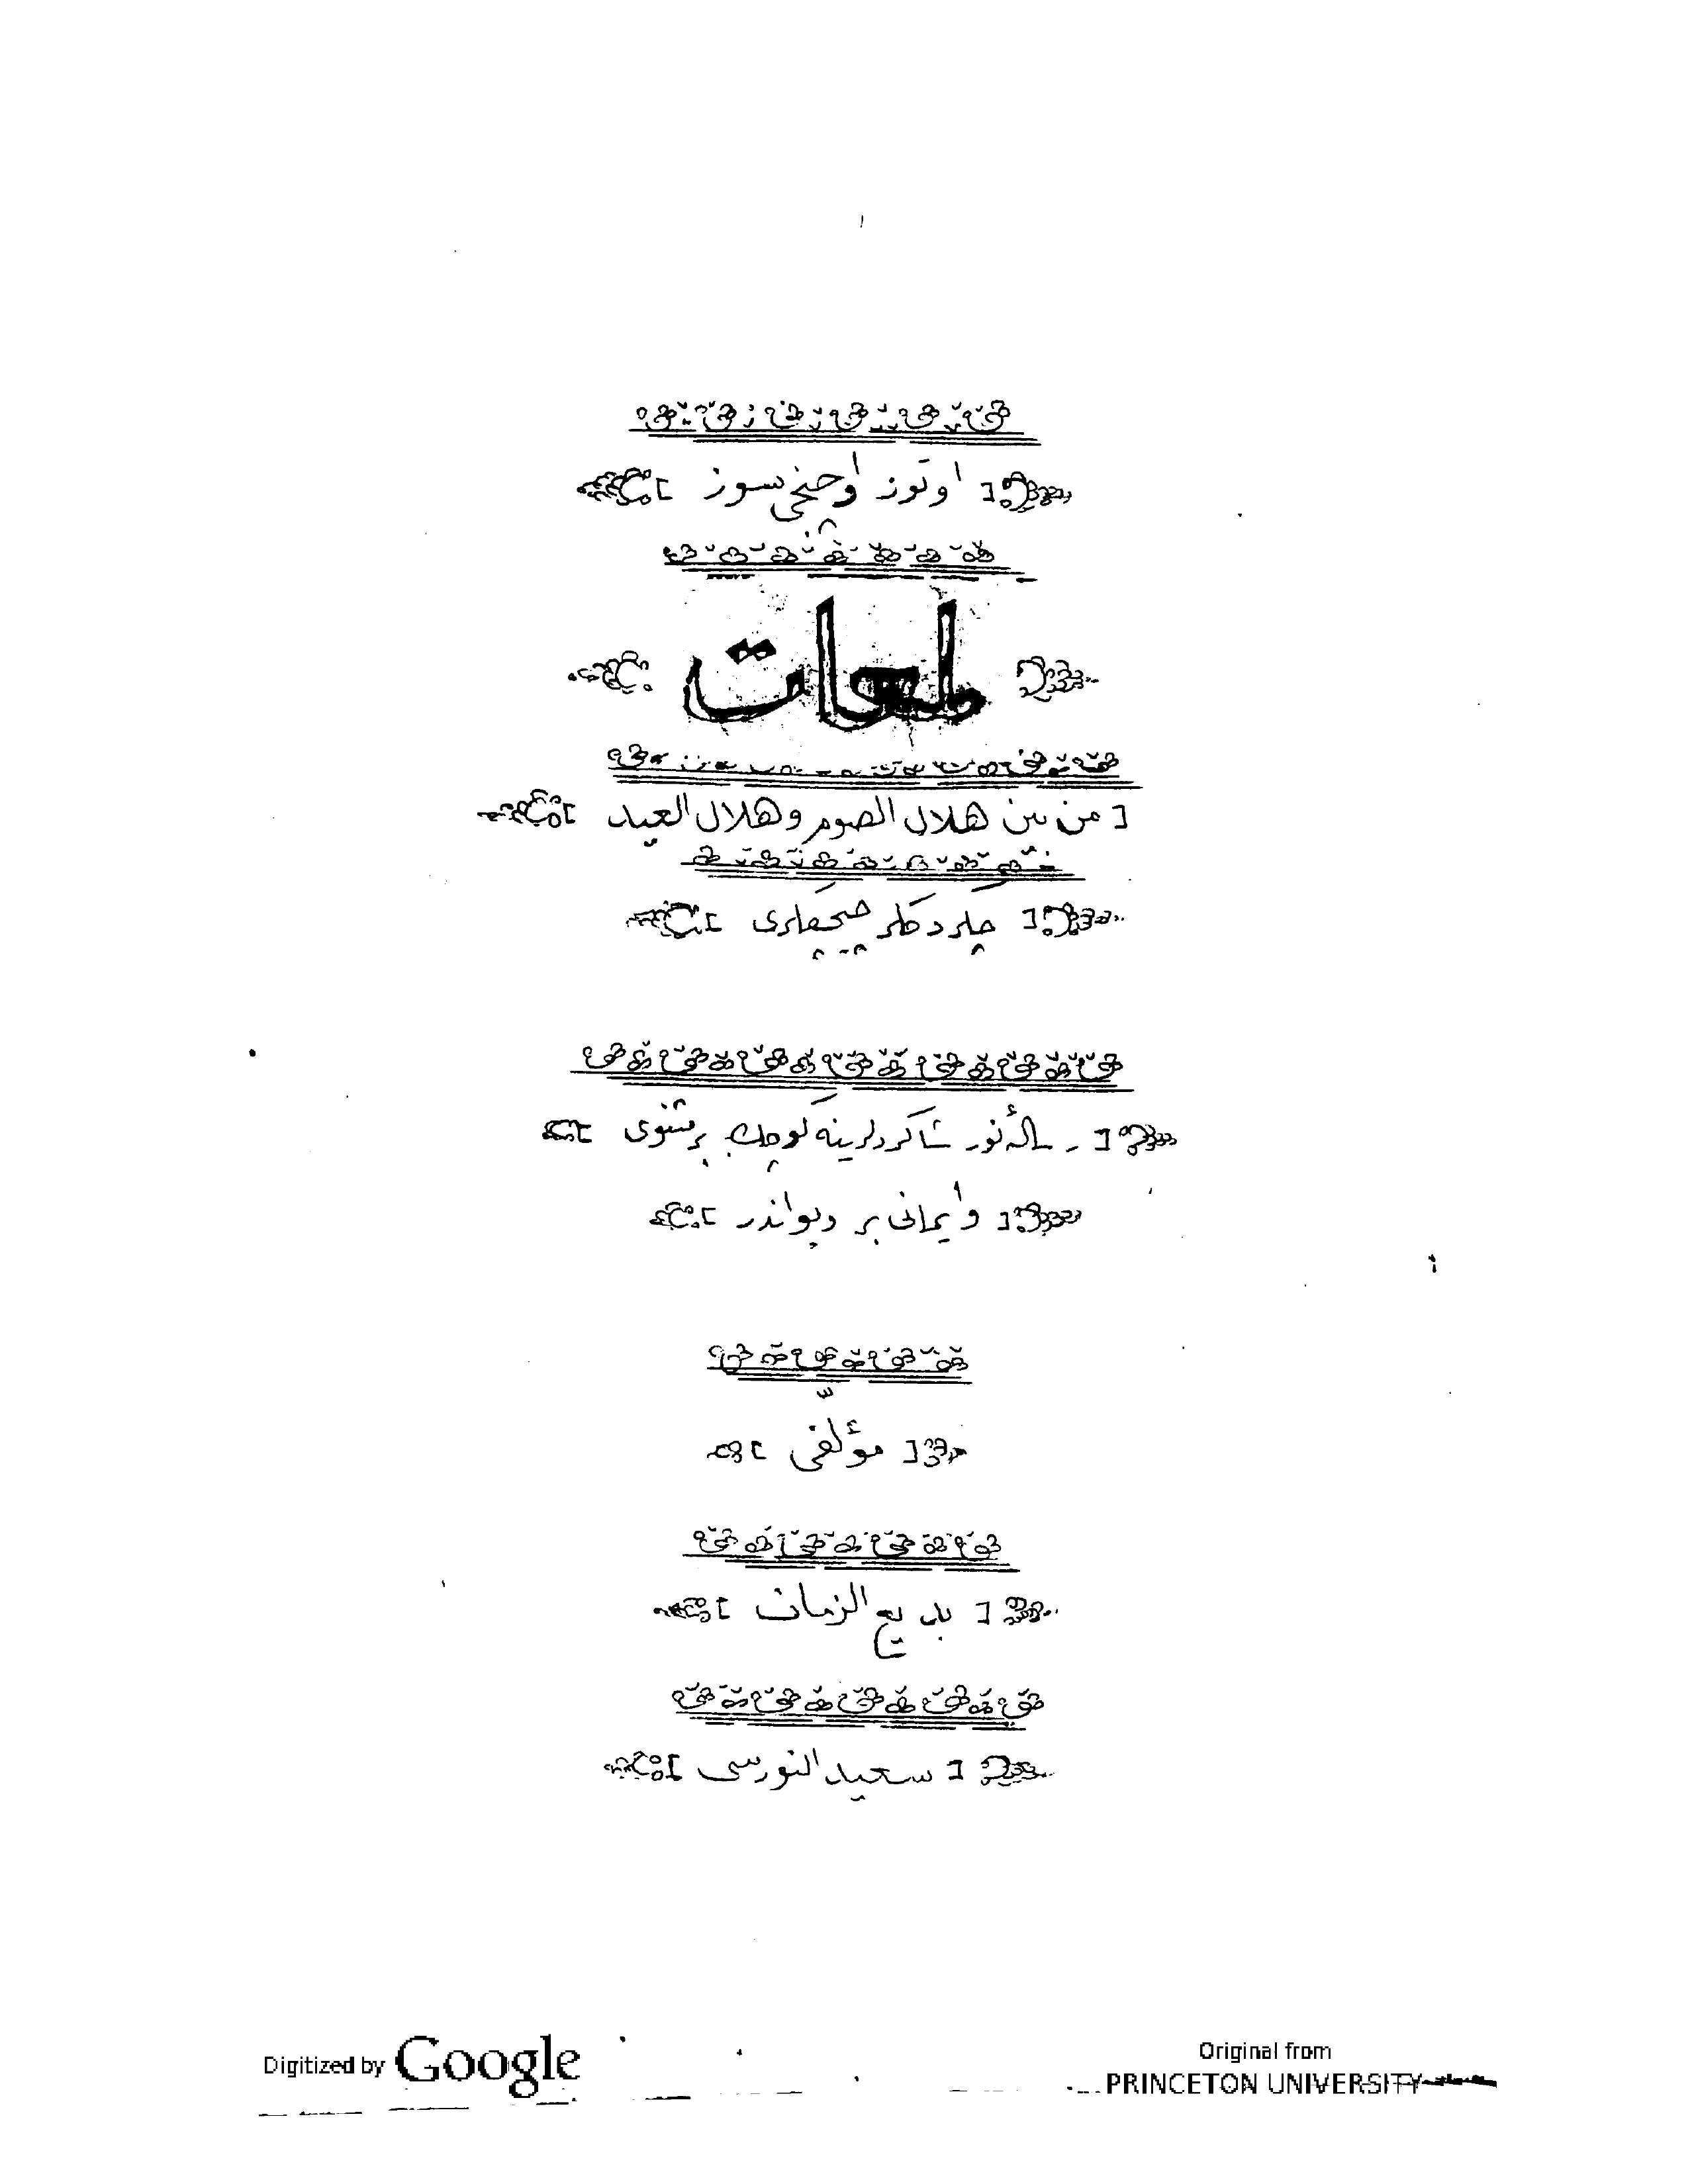 اوتوز اوچنجی سوز
لمعات
من بین هلال الصوم وهلال العید
چکردکلر چیچکلری
رسالۀ نور شاکردلرینه کوچک بر مثنوی
وایمانی بر دیواندر
مؤلفی
بدیع الزمان
سعید النورسی
Digitized by Google
Original from
PRINCETON UNIVERSITY